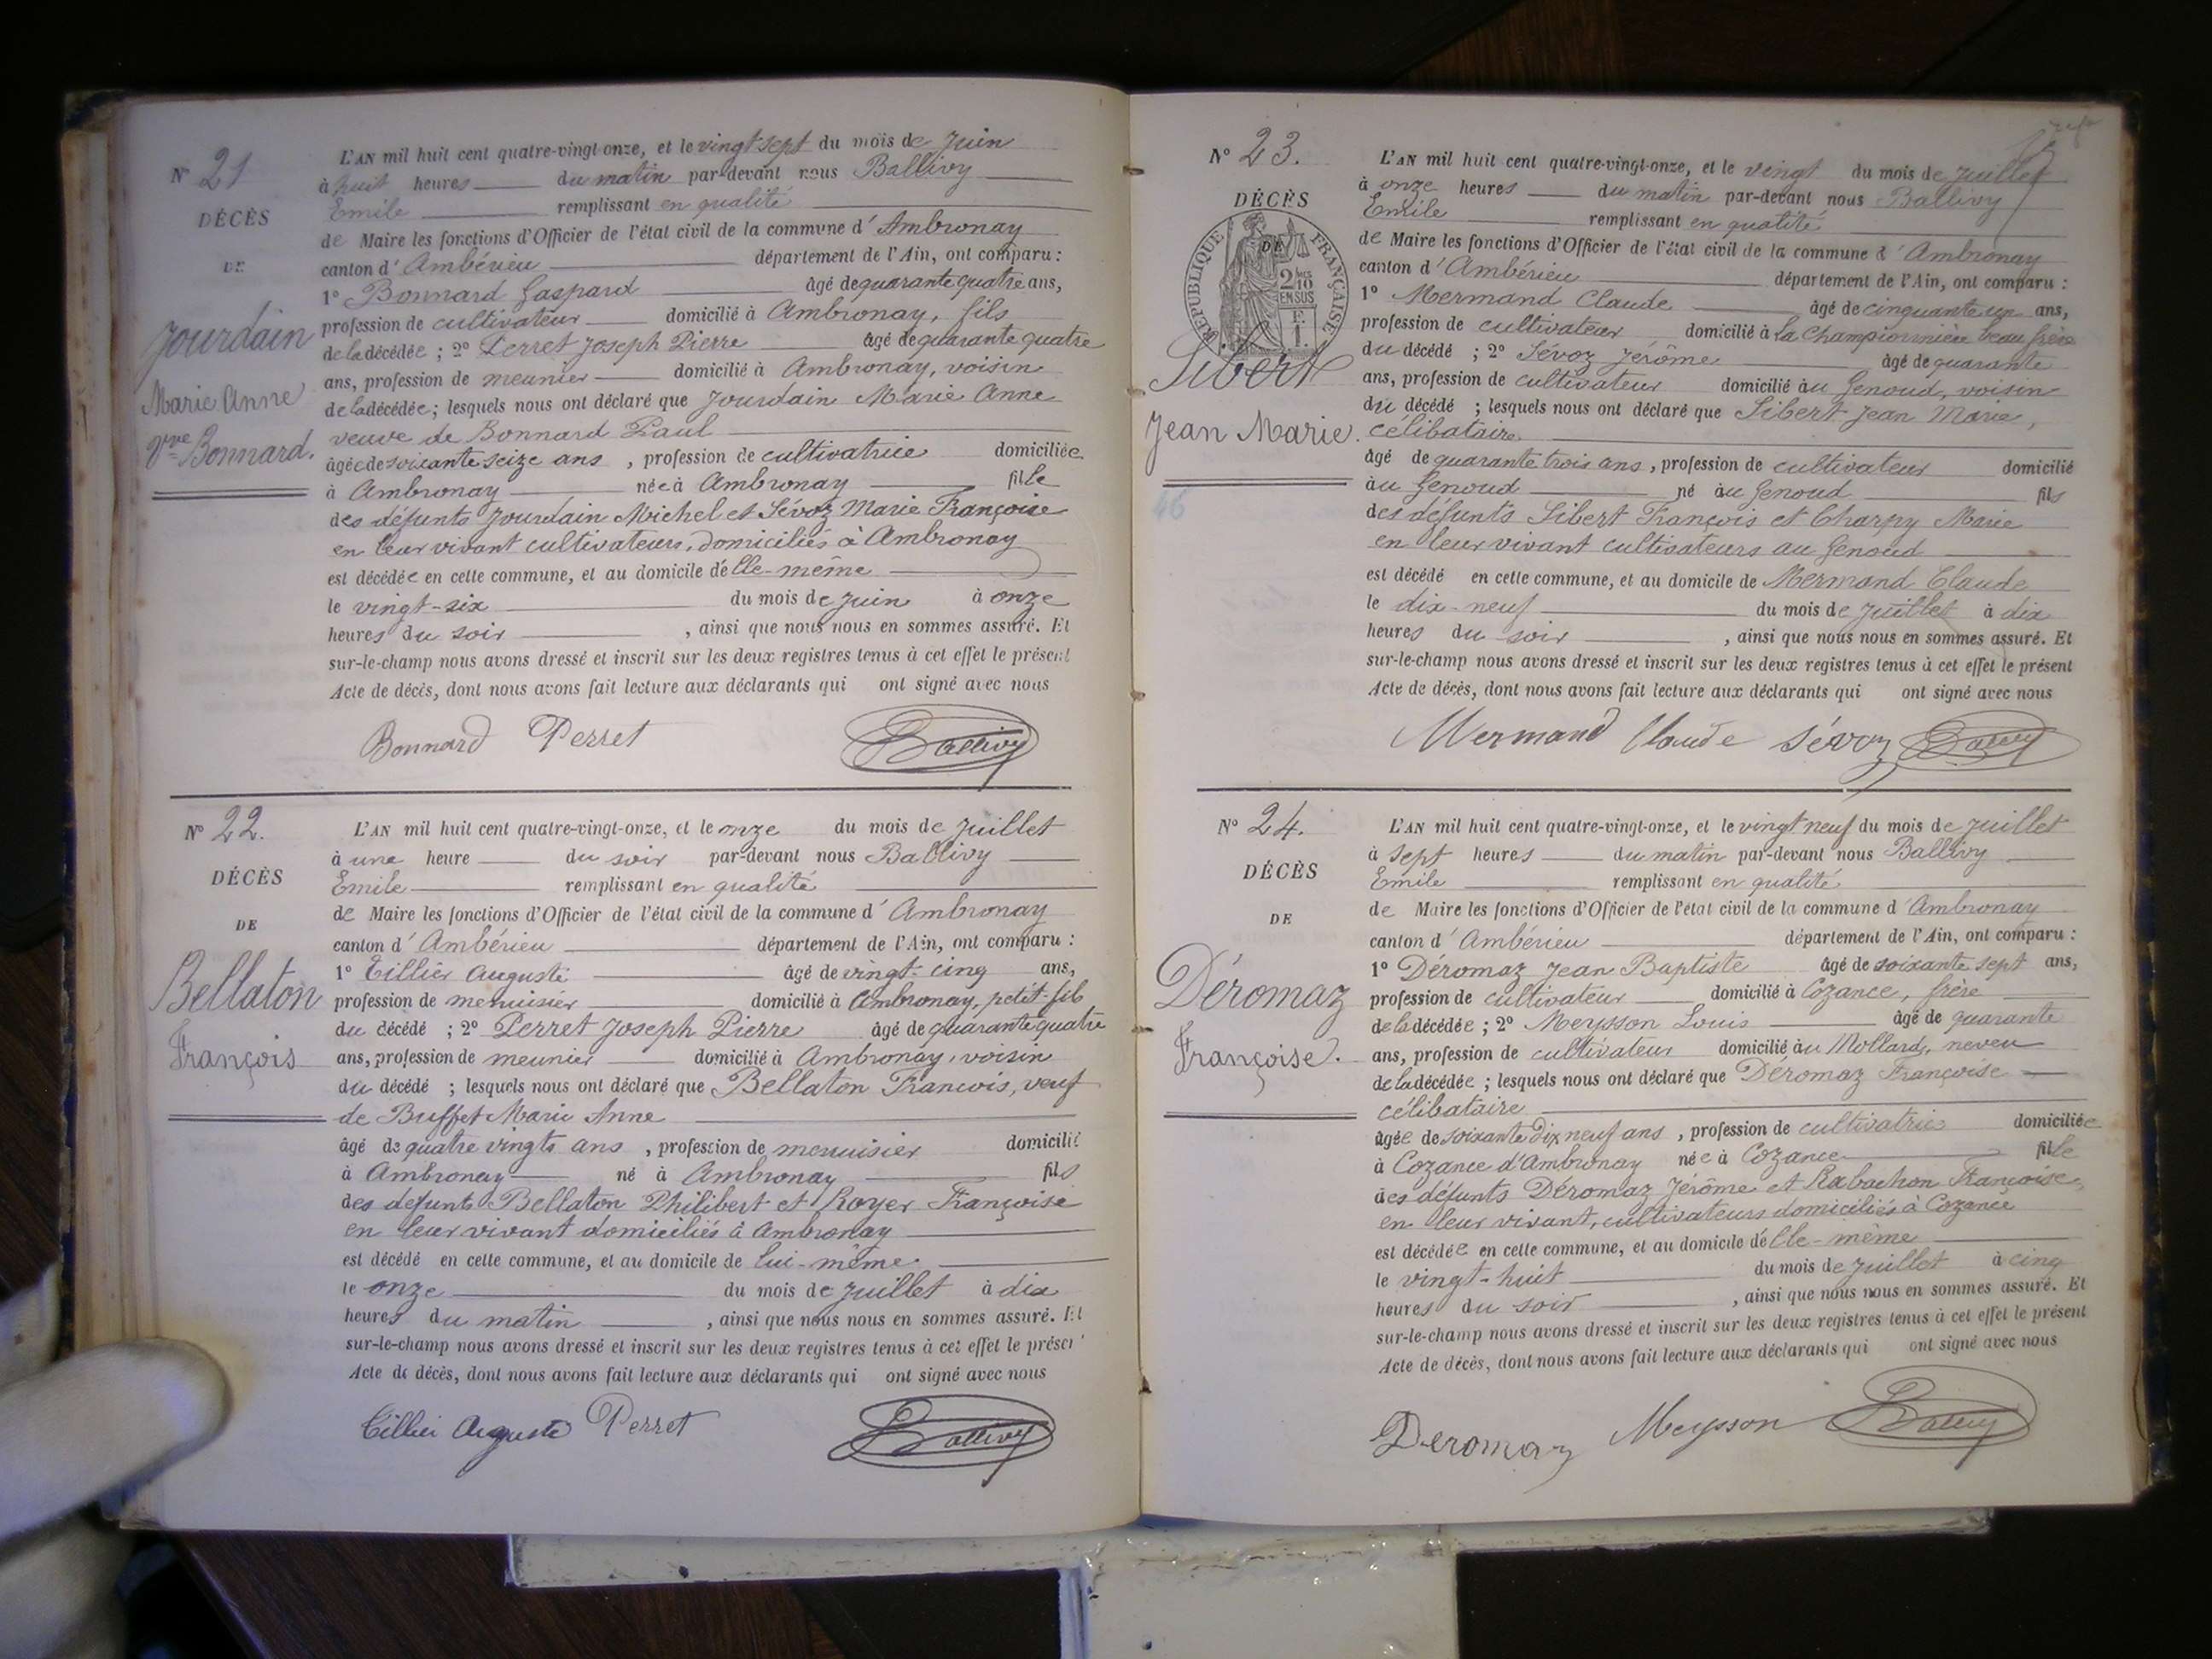 N° 21
DÉCÈS
DE
Jourdain
Marie Anne
Vve Bonnard.
L'AN mil huit cent quatre-vingt-onze, et le vingt sept du mois de Juin
à huit heures du matin par-devant nous Ballivy
Emile remplissant en qualité
de Maire les fonctions d'Officier de l'état civil de la commune d'Ambronay
canton d'Ambérieu département de l'Ain, ont comparu :
1° Bonnard Gaspard âgé de quarante quatre ans,
profession de cultivateur domicilié à Ambronay, fils
de la décédée ; 2° Perret Joseph Pierre âgé de quarante quatre
ans, profession de meunier domicilié à Ambronay, voisin
de la décédée ; lesquels nous ont déclaré que Jourdain Marie Anne
veuve de Bonnard Paul
âgée de soixante seize ans, profession de cultivatrice domiciliée
à Ambronay née à Ambronay fille
des défunts Jourdain Michel et Sévoz Marie Françoise
en leur vivant cultivateurs, domiciliés à Ambronay
est décédée en cette commune, et au domicile d'elle-même
le vingt-six du mois de Juin à onze
heures du soir, ainsi que nous nous en sommes assuré. Et
sur-le-champ nous avons dressé et inscrit sur les deux registres tenus à cet effet le présent
Acte de décès, dont nous avons fait lecture aux déclarants qui ont signé avec nous
Bonnard Perret Ballivy
N° 22.
DÉCÈS
DE
Bellaton
François
L'AN mil huit cent quatre-vingt-onze, et le onze du mois de Juillet
à une heure du soir par-devant nous Ballivy
Emile remplissant en qualité
de Maire les fonctions d'Officier de l'état civil de la commune d'Ambronay
canton d'Ambérieu département de l'Ain, ont comparu :
1° Tillier Auguste âgé de vingt-cinq ans,
profession de menuisier domicilié à Ambronay, petit-fils
du décédé ; 2° Perret Joseph Pierre âgé de quarante quatre
ans, profession de meunier domicilié à Ambronay, voisin
du décédé ; lesquels nous ont déclaré que Bellaton François, veuf
de Buffet Marie Anne
âgé de quatre vingts ans, profession de menuisier domicilié
à Ambronay né à Ambronay fils
des défunts Bellaton Philibert et Royer Françoise
en leur vivant domiciliés à Ambronay
est décédé en cette commune, et au domicile de lui-même
le onze du mois de Juillet à dix
heures du matin, ainsi que nous nous en sommes assuré. Et
sur-le-champ nous avons dressé et inscrit sur les deux registres tenus à cet effet le présent
Acte de décès, dont nous avons fait lecture aux déclarants qui ont signé avec nous
Tillier Auguste Perret Ballivy
N° 23.
DÉCÈS
DE
RÉPUBLIQUE FRANÇAISE
2/10
EN SUS
Sibert
Jean Marie.
46
L'AN mil huit cent quatre-vingt-onze, et le vingt du mois de Juillet
à onze heures du matin par-devant nous Ballivy
Emile remplissant en qualité
de Maire les fonctions d'Officier de l'état civil de la commune d'Ambronay
canton d'Ambérieu département de l'Ain, ont comparu :
1° Mermand Claude âgé de cinquante un ans,
profession de cultivateur domicilié à la Championnière beau frère
du décédé ; 2° Sévoz Jérôme âgé de quarante
ans, profession de cultivateur domicilié au Genoud, voisin
du décédé ; lesquels nous ont déclaré que Sibert Jean Marie,
célibataire
âgé de quarante trois ans, profession de cultivateur domicilié
au Genoud né au Genoud fils
des défunts Sibert François et Charpy Marie
en leur vivant cultivateurs au Genoud
est décédé en cette commune, et au domicile de Mermand Claude
le dix-neuf du mois de Juillet à dix
heures du soir, ainsi que nous nous en sommes assuré. Et
sur-le-champ nous avons dressé et inscrit sur les deux registres tenus à cet effet le présent
Acte de décès, dont nous avons fait lecture aux déclarants qui ont signé avec nous
Mermand Claude Sévoz Ballivy
N° 24.
DÉCÈS
DE
Déromaz
Françoise.
L'AN mil huit cent quatre-vingt-onze, et le vingt neuf du mois de Juillet
à sept heures du matin par-devant nous Ballivy
Emile remplissant en qualité
de Maire les fonctions d'Officier de l'état civil de la commune d'Ambronay
canton d'Ambérieu département de l'Ain, ont comparu :
1° Déromaz Jean Baptiste âgé de soixante sept ans,
profession de cultivateur domicilié à Cozance, frère
de la décédée ; 2° Meysson Louis âgé de quarante
ans, profession de cultivateur domicilié au Mollard, neveu
de la décédée ; lesquels nous ont déclaré que Déromaz Françoise
célibataire
âgée de soixante dix neuf ans, profession de cultivatrice domiciliée
à Cozance d'Ambronay née à Cozance fille
des défunts Déromaz Jérôme et Rabachon Françoise,
en leur vivant, cultivateurs domiciliés à Cozance
est décédée en cette commune, et au domicile d'elle-même
le vingt-huit du mois de Juillet à cinq
heures du soir, ainsi que nous nous en sommes assuré. Et
sur-le-champ nous avons dressé et inscrit sur les deux registres tenus à cet effet le présent
Acte de décès, dont nous avons fait lecture aux déclarants qui ont signé avec nous
Deromaz Meysson Ballivy